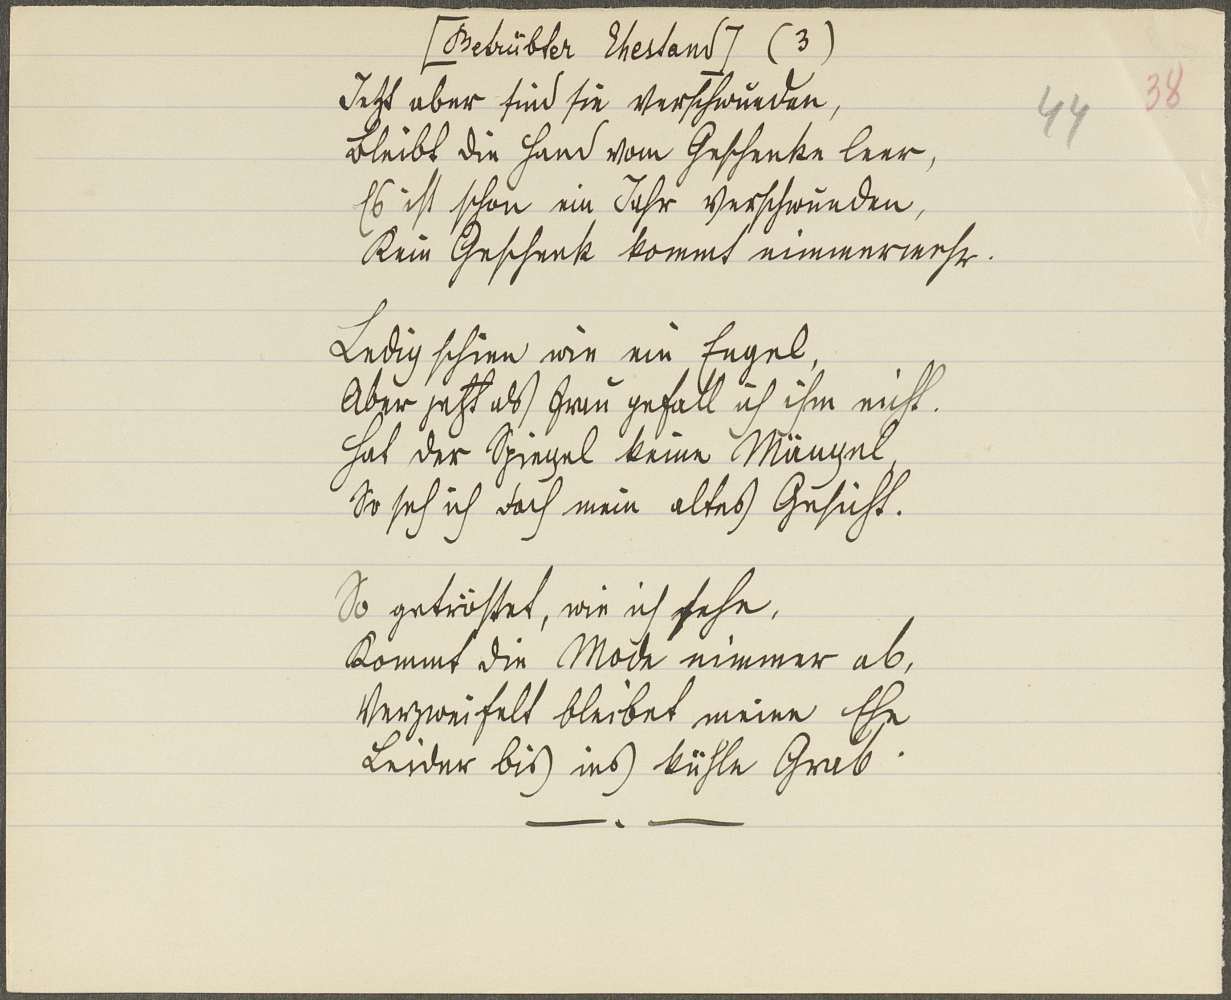 [Betrübter Ehestand] (3)
44
38
Jetzt aber sind sie verschwunden,
Bleibt die Hand vom Geschenke leer,
Es ist schon ein Jahr verschwunden,
Kein Geschenk kommt nimmermehr.
Ledig schien wie ein Engel,
Aber jetzt als Frau gefall ich ihm nicht.
Hat der Spiegel keine Mängel,
So seh ich doch mein altes Gesicht.
So getröstet, wie ich sehe,
Kommt die Mode nimmer ab,
Verzweifelt bleibet meine Ehe
Leider bis ins kühle Grab.